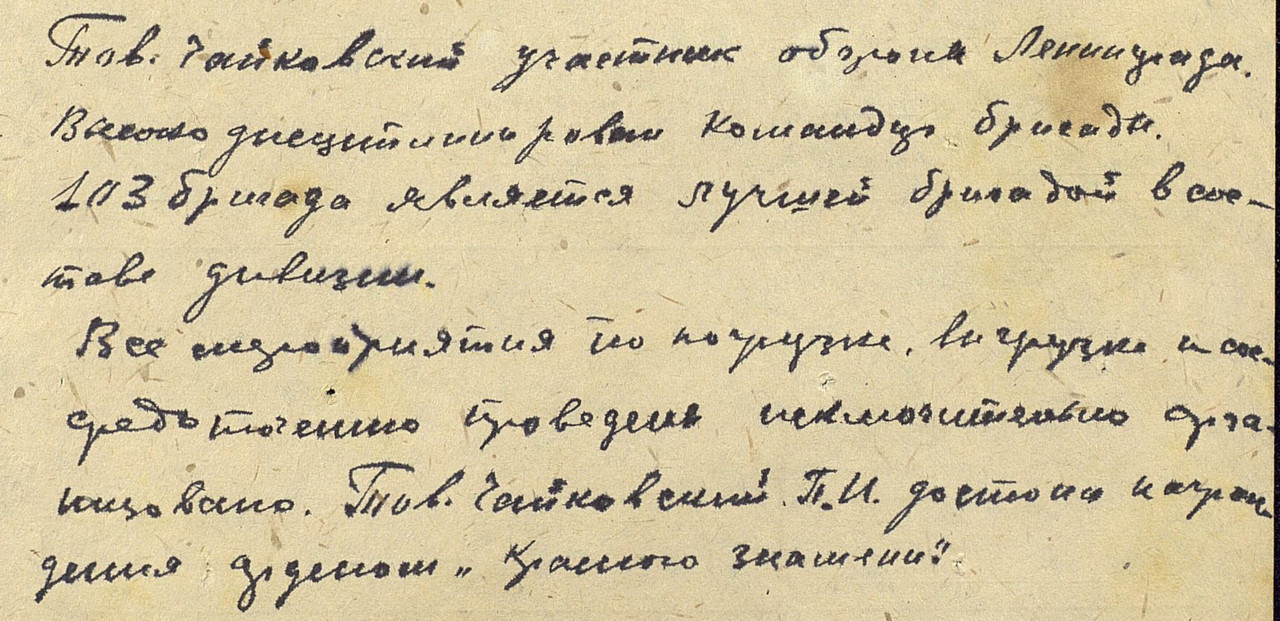 Тов. Чайковский участник обороны Ленинграда.
Высоко дисциплинирован командир бригады.
103 бригада является лучшей бригадой в сос-
таве дивизии.
Все мероприятия по погрузке, выгрузке и сос-
редоточению проведены исключительно орга-
низовано. Тов. Чайковский П.И. достоин награж-
дения орденом „Красного знамени“.